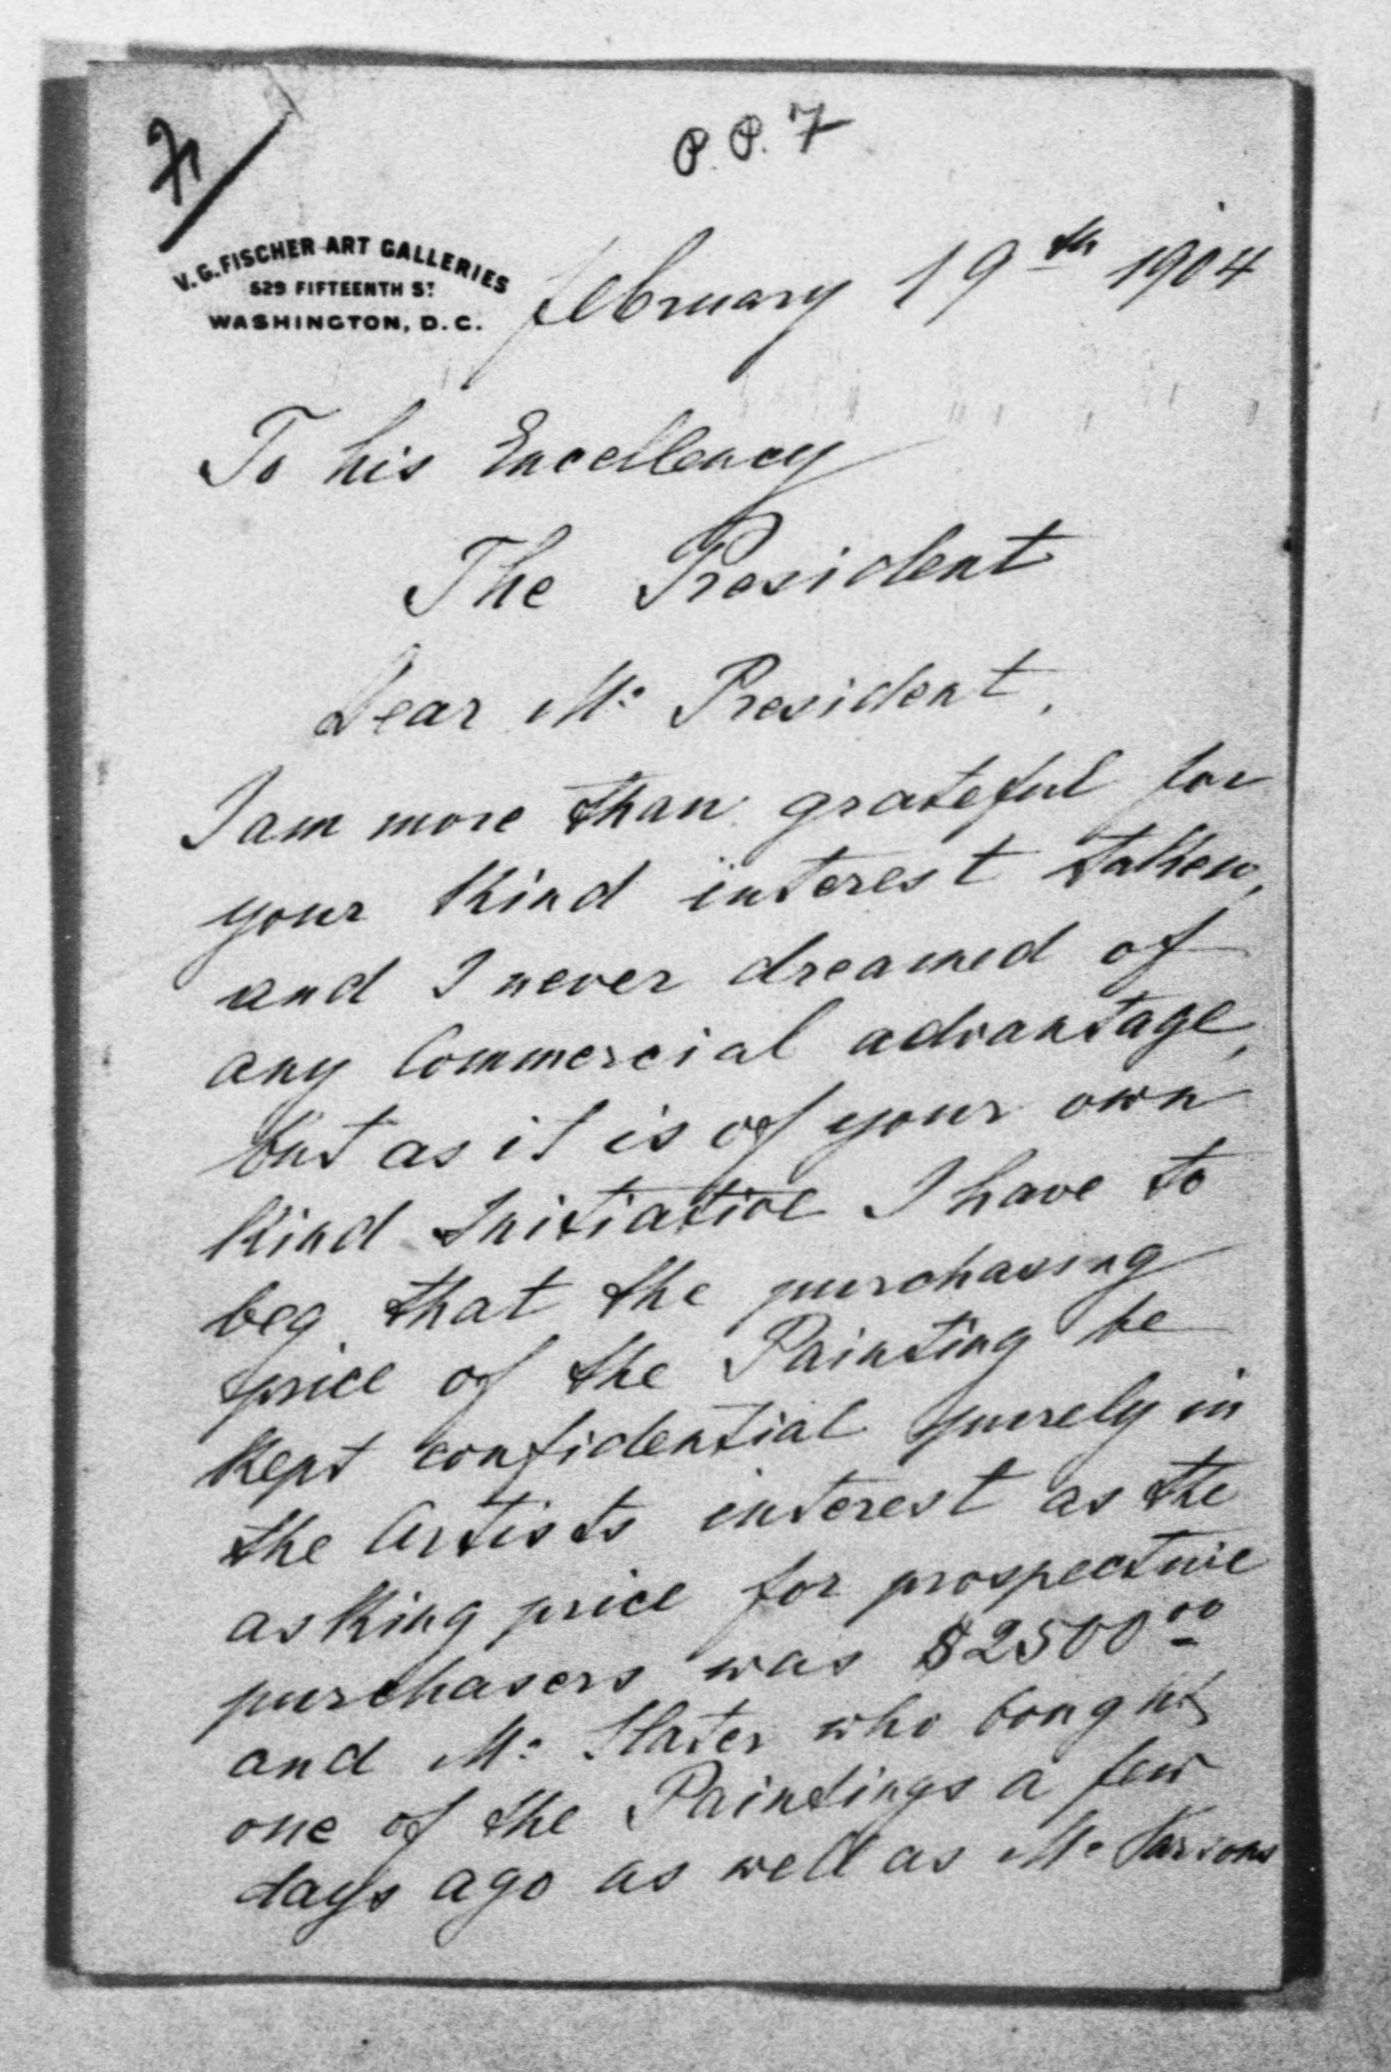 P. P. 7
V. G. FISCHER ART GALLERIES
529 FIFTEENTH ST
WASHINGTON, D. C.
February 19th 1904
To his Excellency
The President
Dear Mr President,
I am more than grateful for
your kind interest taken,
and I never dreamed of
any Commercial advantage,
but as it is of your own
kind Initiative I have to
beg that the purchasing
price of the Painting be
kept confidential purely in
the Artists interest as the
asking price for prospective
purchasers was $2500.00
and Mr Slater who bought
one of the Paintings a few
days ago as well as Mr Parsons